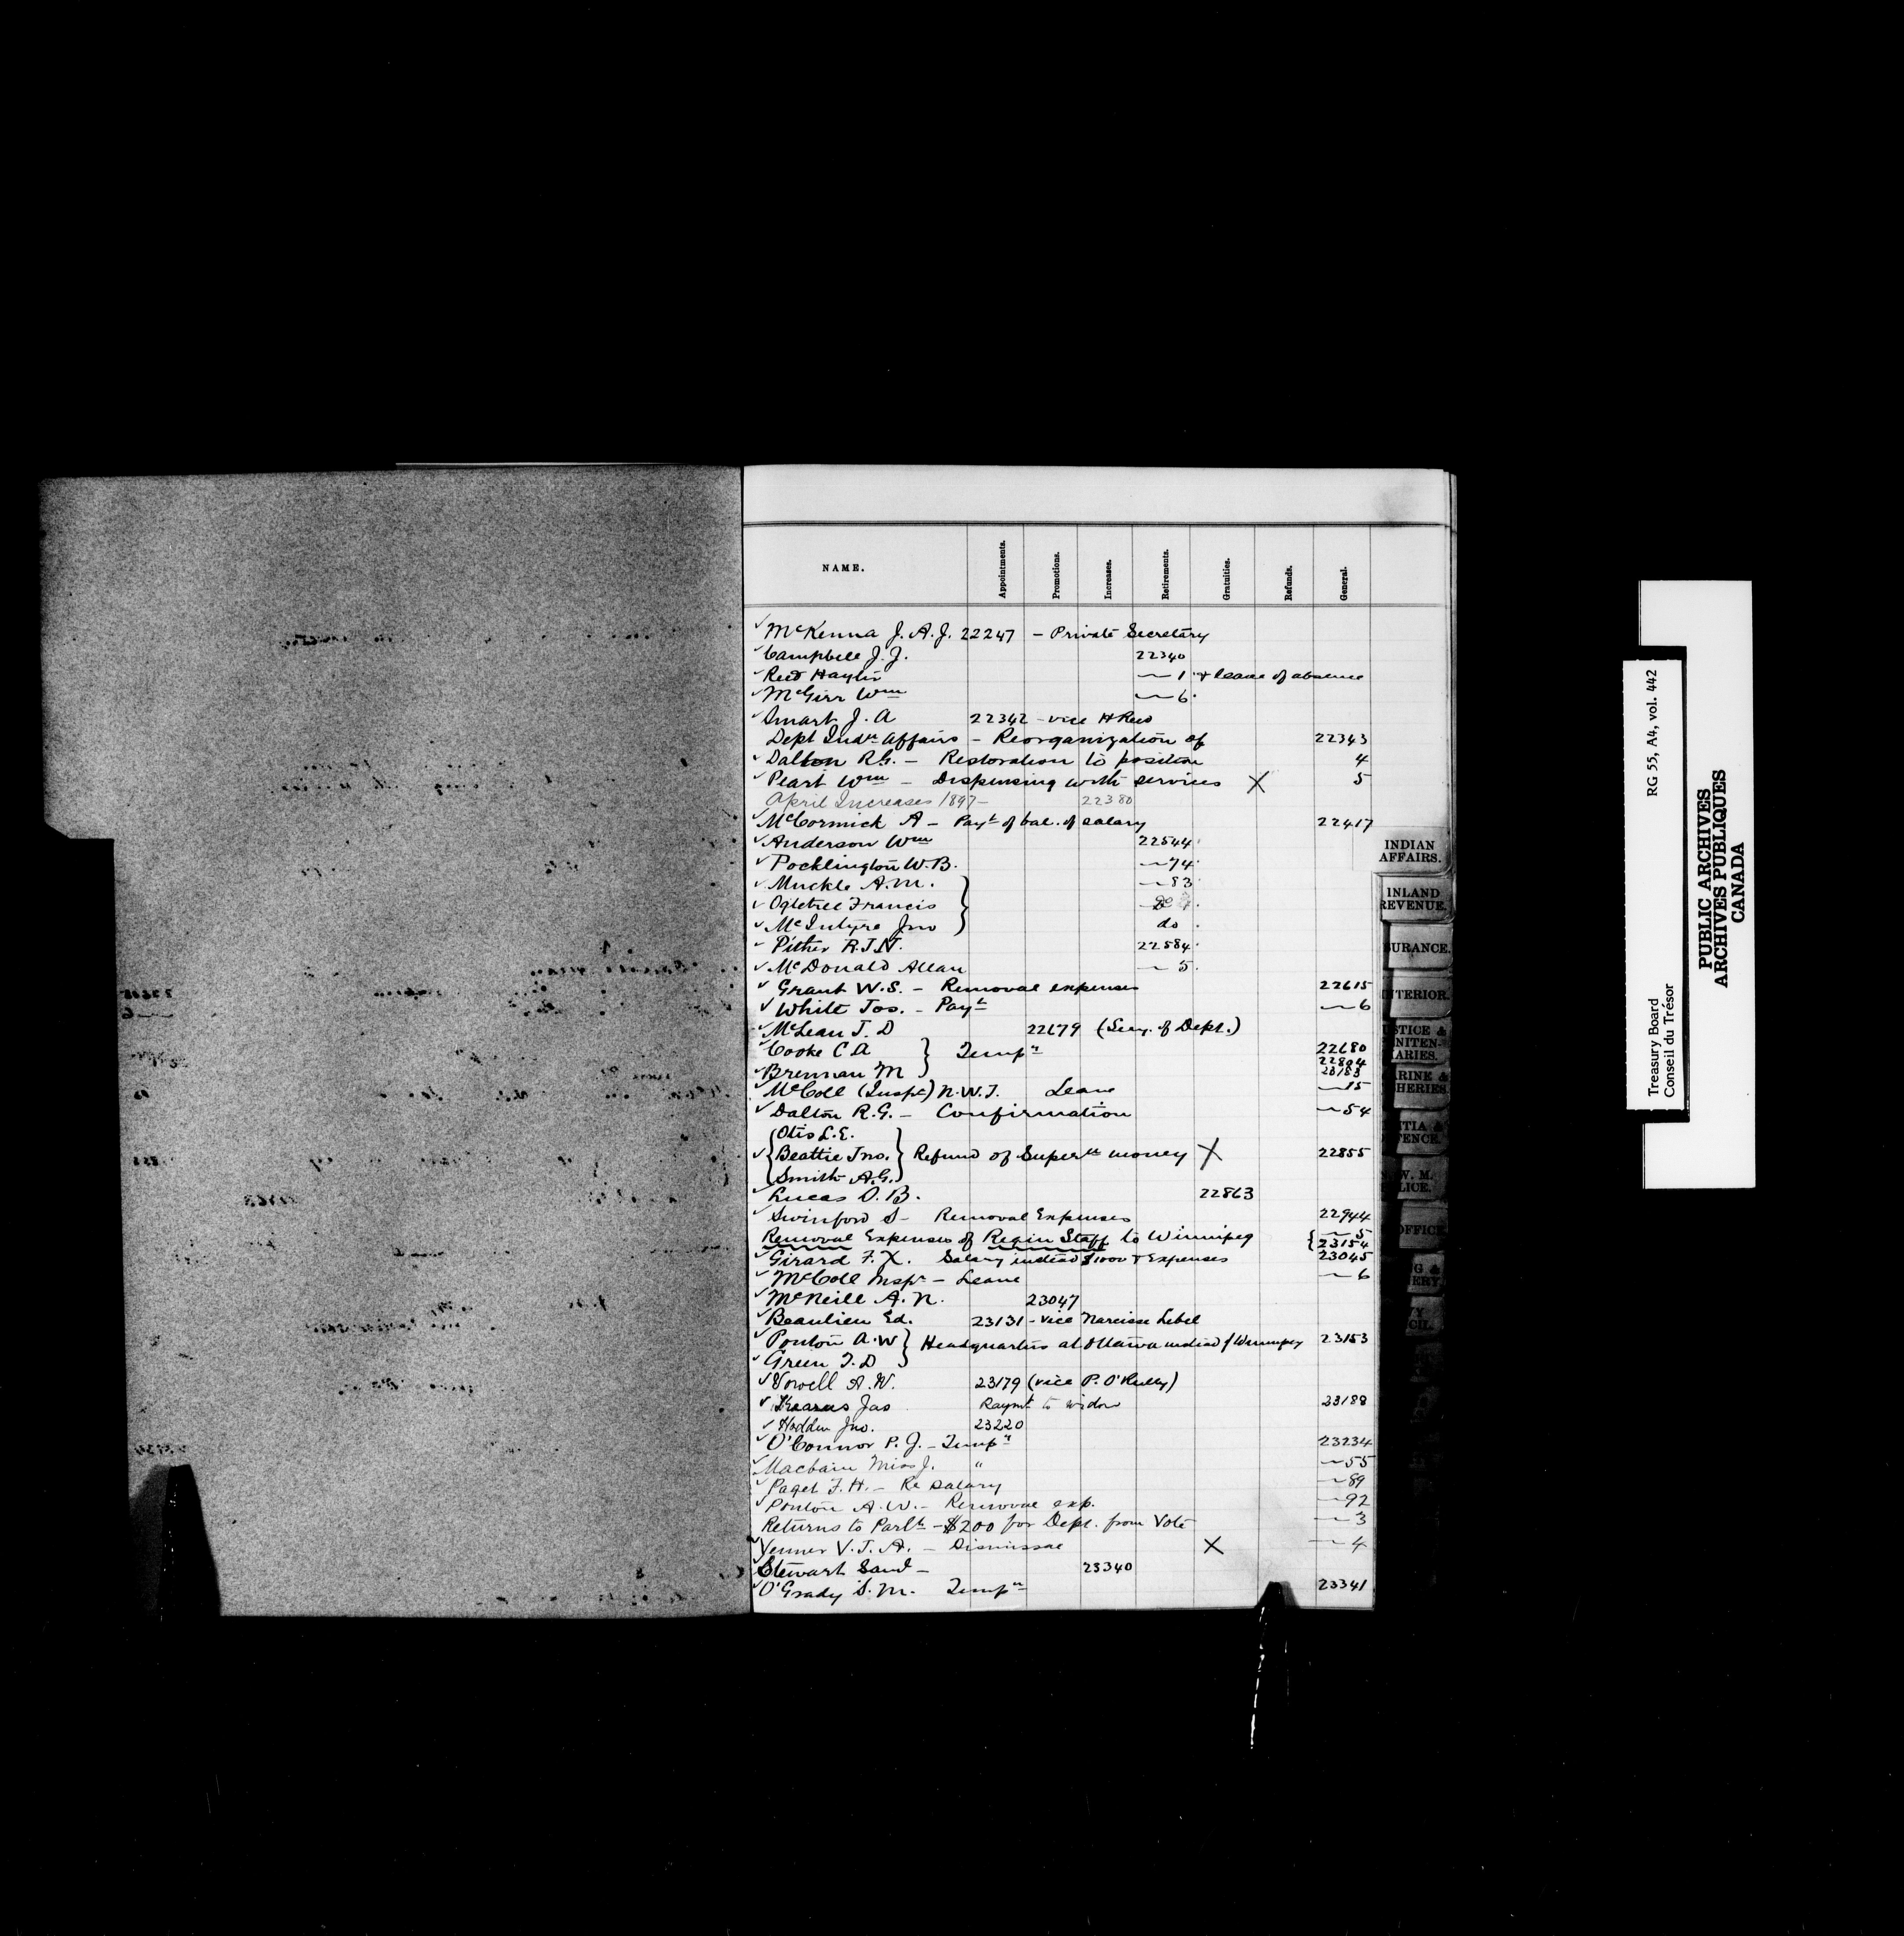 NAME. Appointments. Promotions. Increases. Retirements. Gratuities. Refunds. General.
✓ McKenna J. A. J. 22247 – Private Secretary
✓ Campbell J. J. 22340
✓ Reed Hayter ~ 1 & leave of absence
✓ McGirr Wm ~ 6
✓ Smart J. A 22342 – vice H Reed
Dept Indn Affairs – Reorganization of 22343
✓ Dalton R G. – Restoration to position 4
✓ Peart Wm – Dispensing with services X 5
April Increases 1897 – 22380
✓ McCormick A – Payt of bal. of salary 22417
✓ Anderson Wm 22544
✓ Pocklington W. B. ~ 74
✓ Muckle A. M. } ~ 83
✓ Ogletree Francis } Do
✓ McIntyre Jno } do
✓ Pither R. J. N. 22584
✓ McDonald Allan ~ 5
✓ Grant W. S. – Removal expenses 22615
✓ White Jos. – Payt ~ 6
✓ McLean J. D 22679 (Secy. of Dept.)
✓ Cooke C A } Tempy 22680
22804
✓ Brennan M } 23183
✓ McColl (Inspr) N. W. T. Leave ~ 15
✓ Dalton R. G. – Confirmation ~ 54
{ Otis L. E. }
✓ { Beattie Jno. } Refund of Superan money X 22855
{ Smith A. G. }
✓ Lucas D. B. 22863
✓ Swinford S – Removal Expenses 22944
Removal Expenses of Regin Staff to Winnipeg { ~ 5
23154
✓ Girard F. X. Salary instead $1000 & Expenses 23045
✓ McColl Inspr – Leave ~ 6
✓ McNeill A. N. 23047
✓ Beaulieu Ed. 23131 – vice Narcisse Lebel
✓ Ponton A. W } Headquarters at Ottawa instead of Winnipeg 23153
✓ Green T. D }
✓ Vowell A. W. 23179 (vice P. O'Reilly)
✓ Kearns Jas Paymt to widow 23188
✓ Hodden Jno. 23220
✓ O'Connor P. J. – Tempy 23234
✓ Macbain Miss J. " ~ 55
✓ Paget F. H. – Re salary ~ 89
✓ Ponton A. W. – Removal exp. ~ 92
Returns to Parlt – $200 for Dept. from Vote ~ 3
✓ Yenner V. J. A. – Dismissal X ~ 4
✓ Stewart Saml – 23340
✓ O'Grady S. M. Tempy 23341
INDIAN
AFFAIRS.
INLAND
REVENUE.
SURANCE.
NTERIOR.
STICE &
NITEN-
IARIES.
ARINE &
HERIES
ITIA &
FENCE.
W. M.
LICE.
OFFICE
G &
ERY.
CIL.
Treasury Board RG 55, A4, vol. 442
Conseil du Trésor
PUBLIC ARCHIVES
ARCHIVES PUBLIQUES
CANADA